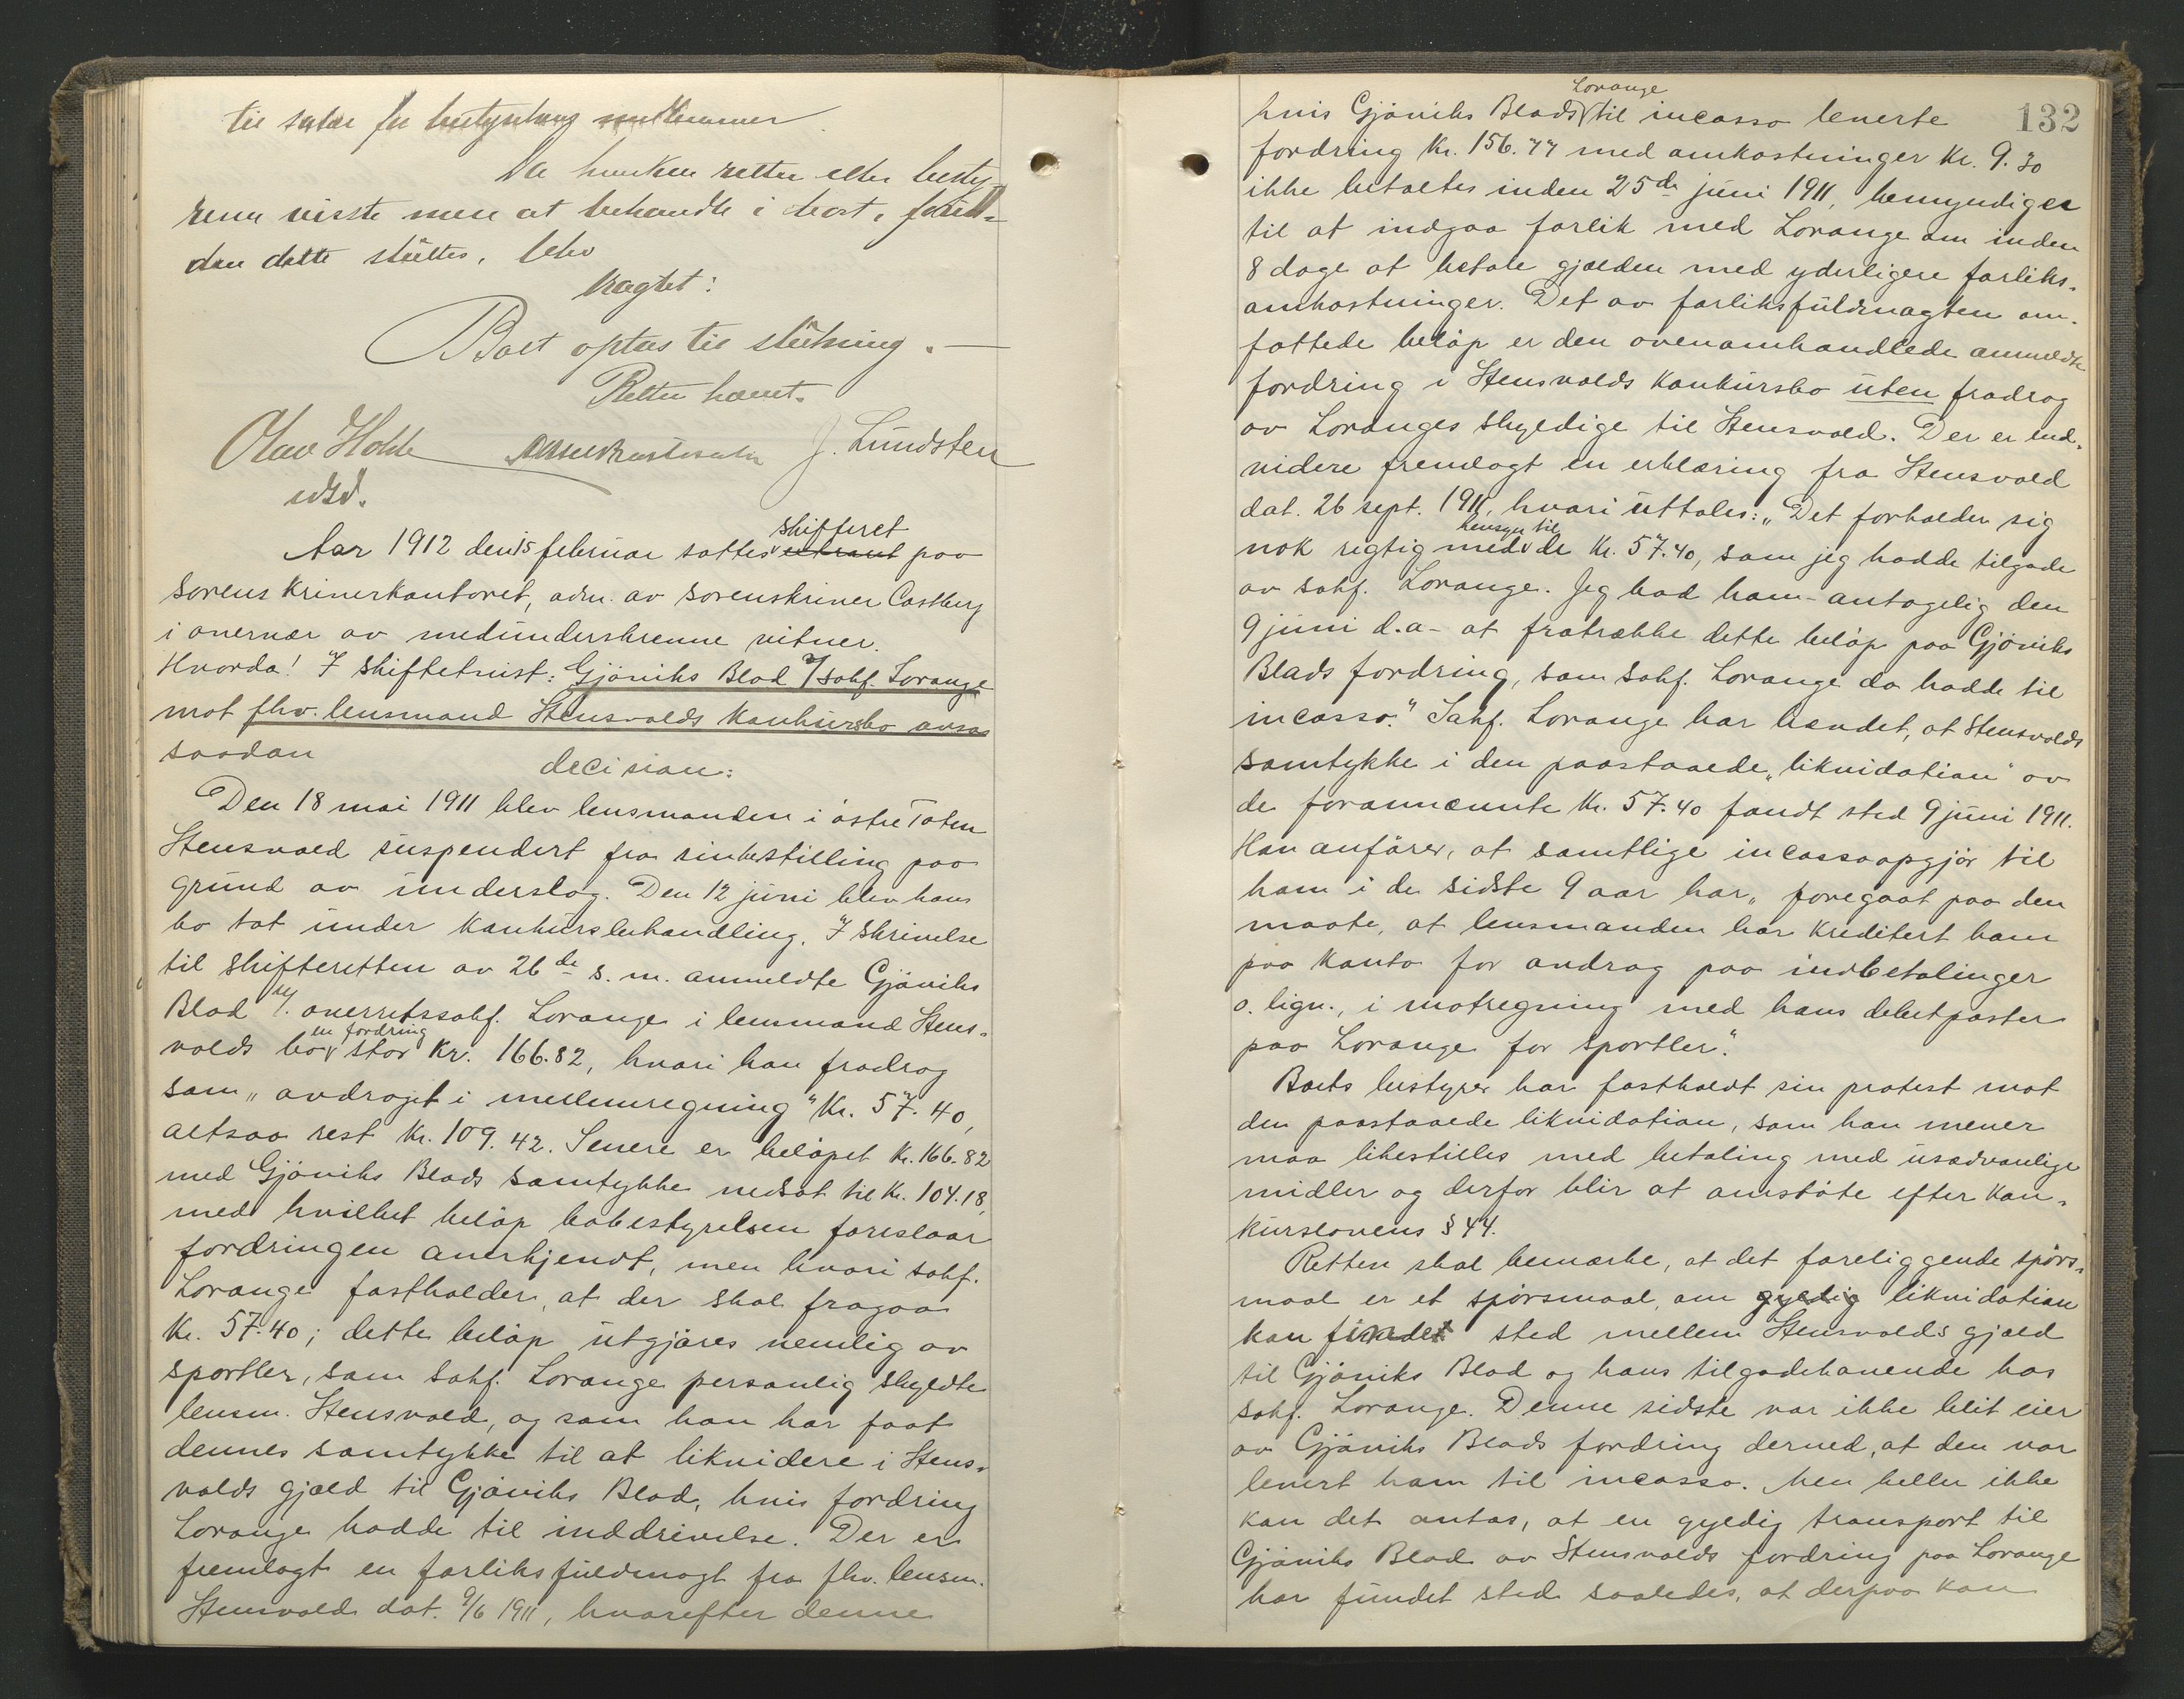 til salær for bestyrelsens medlemmer.
Da hverken retten eller besty-
reren visste mere at behandle i boet, forin-
den dette sluttes, blev
tragtet:
Boet optas til slutning. —
Retten hævet.
Olav Holde J. Lundsten
Aar 1912 den 15 februar sattes skifteret paa
sorenskriverkontoret, adm. av sorenskriver Castberg
i overvær av medunderskrevne vitner.
Hvorda! I skiftetvist: Gjøviks Blad v/ sakf. Lorange
mot fhv. lensmand Stensvolds konkursbo avsas
saadan
decision:
Den 18 mai 1911 blev lensmanden i østre Toten
Stensvold suspendert fra sin bestilling paa
grund av underslag. Den 12 juni blev hans
bo tat under konkursbehandling. I skrivelse
til skifteretten av 26de s. m. anmeldte Gjøviks
Blad v/ overretssakf. Lorange i lensmand Stens-
volds bo en fordring stor kr. 166.82, hvori han fradrog
som „avdraget i mellemregning" kr. 57.40,
altsaa rest kr. 109.42. Senere er beløpet kr. 166.82
med Gjøviks Blads samtykke nedsat til kr. 104.18,
med hvilket beløp bobestyrelsen foreslaar
fordringen anerkjendt, men hvori sakf.
Lorange fastholder, at der skal fragaa
kr. 57.40; dette beløp utgjøres nemlig av
sportler, som sakf. Lorange personlig skyldte
lensm. Stensvold, og som han har faat
dennes samtykke til at likvidere i Stens-
volds gjæld til Gjøviks Blad, hvis fordring
Lorange hadde til inddrivelse. Der er
fremlagt en forliksfuldmagt fra fhv. lensm.
Stensvold dat. 9/6 1911, hvorefter denne
132
hvis Gjøviks Blads Lorange til incasso leverte
fordring kr. 156.77 med omkostninger kr. 9.30
ikke betaltes inden 25de juni 1911, bemyndiges
til at indgaa forlik med Lorange om inden
8 dage at betale gjælden med yderligere forliks-
omkostninger. Det av forliksfuldmagten om-
fattede beløp er den ovenomhandlede anmeldte
fordring i Stensvolds konkursbo uten fradrag
av Loranges skyldige til Stensvold. Der er end-
videre fremlagt en erklæring fra Stensvold
dat. 26 sept. 1911, hvori uttales: „Det forholder sig
nok rigtig med hensyn til de kr. 57.40, som jeg hadde tilgode
av sakf. Lorange. Jeg bad ham - antagelig den
9 juni d.a - at fratrække dette beløp paa Gjøviks
Blads fordring, som sakf. Lorange da hadde til
incasso." Sakf. Lorange har hævdet, at Stensvolds
samtykke i den paastaaede „likvidation" av
de forannævnte kr. 57.40 fandt sted 9 juni 1911.
Han anfører, at samtlige incassoopgjør til
ham i de sidste 9 aar har „foregaat paa den
maate, at lensmanden har kreditert ham
paa konto for avdrag paa indbetalinger
o. lign., i motregning med hans debetposter
paa Lorange for sportler."
Boets bestyrer har fastholdt sin protest mot
den paastaaede likvidation, som han mener
maa likestilles med betaling med usædvanlige
midler og derfor blir at omstøte efter kon-
kurslovens § 44.
Retten skal bemærke, at det foreliggende spørs-
maal er et spørsmaal, om gyldig likvidation
kan finde sted mellem Stensvolds gjæld
til Gjøviks Blad og hans tilgodehavende hos
sakf. Lorange. Denne sidste var ikke blit eier
av Gjøviks Blads fordring derved, at den var
levert ham til incasso. Men heller ikke
kan det antas, at en gyldig transport til
Gjøviks Blad av Stensvolds fordring paa Lorange
har fundet sted saaledes, at derpaa kan